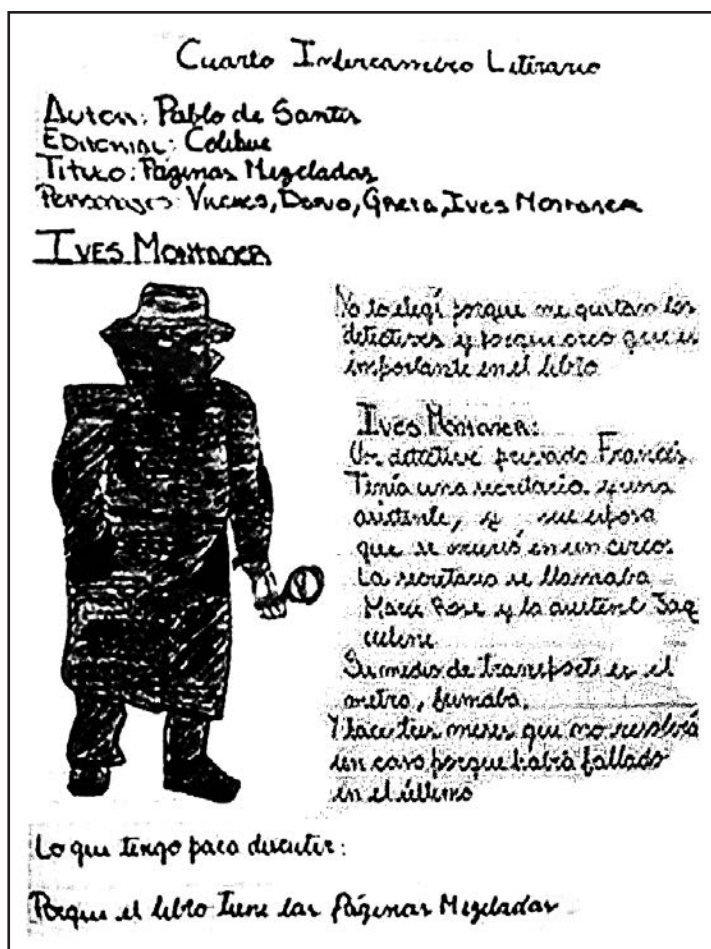 Cuarto Intercambio Literario
Autor: Pablo de Santis
Editorial: Colihue
Titulo: Páginas Mezcladas
Personajes: Vilches, Dorio, Greta, Ives Montaner
IVES MONTANER
Yo lo elegí porque me gustan los
detectives y porque creo que es
importante en el libro
Ives Montaner:
Un detective privado Francés
Tenía una secretaria y una
asistente, y su esposa
que se murió en un circo.
La secretaria se llamaba
Marie Rose y la asistent Jaq
culene
Su medio de transporte es el
metro, fumaba.
Hace tres meses que no resolvía
un caso porque había fallado
en el último
Lo que tengo para discutir:
Porque el libro Tiene las Páginas Mezcladas